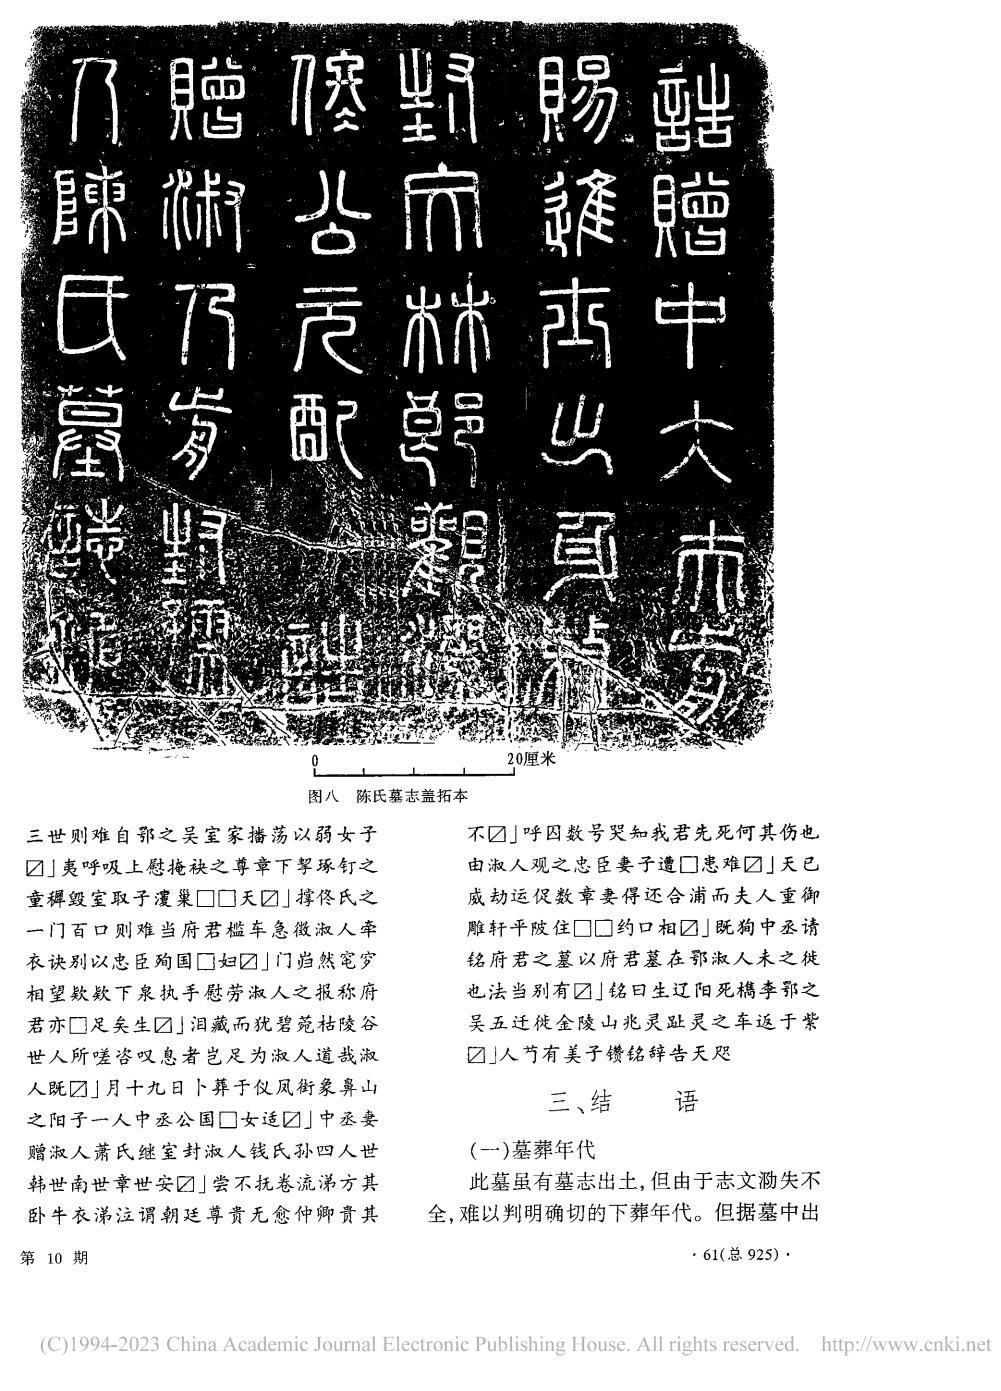 誥贈中大夫前
賜進士出身
封文林郎觀
公元配誥
贈淑人前封孺
人陳氏墓誌銘
0 20厘米
图八 陈氏墓志盖拓本
三世则难自鄂之吴室家播荡以弱女子
〼」夷呼吸上慰掩袂之尊章下挈琢钉之
童穉毁室取子澧巢□□天〼」撑佟氏之
一门百口则难当府君槛车急徵淑人牵
衣诀别以忠臣殉国□妇〼」门岿然窀穸
相望欸欸下泉执手慰劳淑人之报称府
君亦□足矣生〼」泪藏而犹碧菀枯陵谷
世人所嗟咨叹息者岂足为淑人道哉淑
人既〼」月十九日卜葬于仪凤街象鼻山
之阳子一人中丞公国□女适〼」中丞妻
赠淑人萧氏继室封淑人钱氏孙四人世
韩世南世章世安〼」尝不抚卷流涕方其
卧牛衣涕泣谓朝廷尊贵无愈仲卿贵其
不〼」呼囚数号哭知我君先死何其伤也
由淑人观之忠臣妻子遭□患难〼」天已
威劫运促数章妻得还合浦而夫人重御
雕轩平陂住□□约口相〼」既狗中丞请
铭府君之墓以府君墓在鄂淑人未之徙
也法当别有〼」铭曰生辽阳死檇李鄂之
吴五迁徙金陵山兆灵趾灵之车返于紫
〼」人芍有美子镌铭辞告天咫
三、结 语
(一)墓葬年代
此墓虽有墓志出土,但由于志文泐失不
全,难以判明确切的下葬年代。但据墓中出
第 10 期
· 61(总 925) ·
(C)1994-2023 China Academic Journal Electronic Publishing House. All rights reserved. http://www.cnki.net